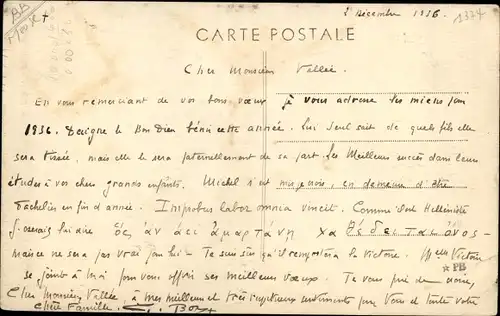 2 Décembre 1936
1374
CARTE POSTALE
Cher Monsieur Vallée.
En vous remerciant de vos bons vœux je vous adresse les miens pour
1936. Daigne le Bon Dieu bénir cette année. Lui seul sait de quels fils elle
sera tissée, mais elle le sera paternellement de sa part. Les Meilleurs succès dans leurs
études à vos chers grands enfants. Michel s'est mis je crois, en demeure d'être
bachelier en fin d'année. Improbus labor omnia vincit. Comme il est Helléniste
j'oserais lui dire ὅς ἀν ἀει ἁμαρτάνη
mance ne sera pas vrai pour lui - Je suis sûr qu'il remportera la Victoire. Melle Victoire
se joint à moi pour vous offrir ses meilleurs vœux. Je vous prie de croire,
Cher Monsieur Vallée, à mes meilleurs et très respectueux sentiments pour Vous et toute votre
chère Famille.
PB